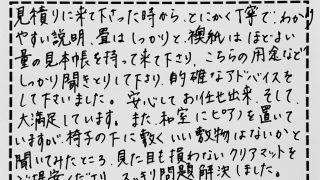 見積りに来て下さった時から、とにかく丁寧で、わかり
やすい説明、畳はしっかりと、襖紙はほどよい
量の見本帳を持って来て下さり、こちらの用途など
しっかり聞きとりして下さり、的確なアドバイスを
して下さいました。安心してお任せ出来、そして、
大満足しています。また、和室にピアノを置いて
いますが、椅子の下に敷くいい敷物はないかと
聞いてみたところ、見た目も損わないクリアマットを
ご提案くださり、すっきり問題解決しました。